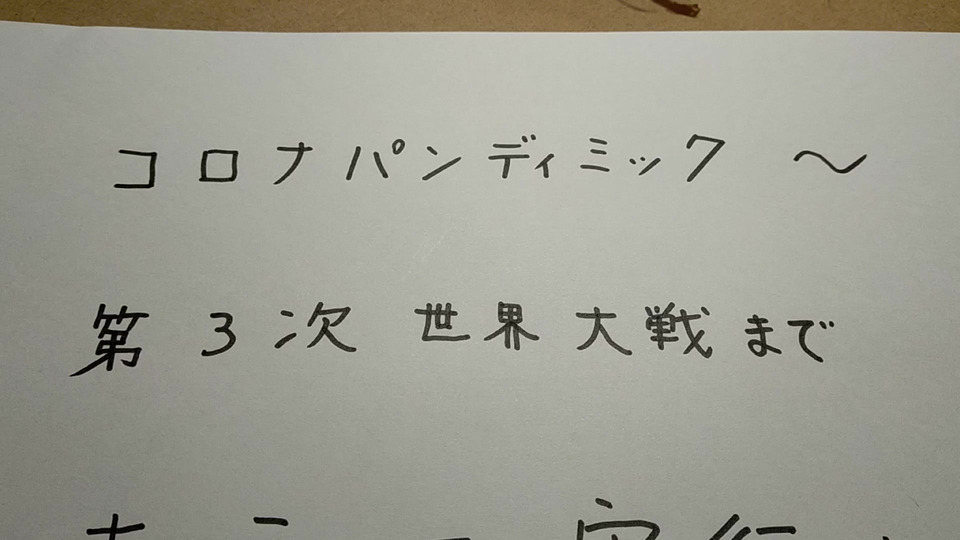 コロナパンディミック ～
第3次世界大戦まで